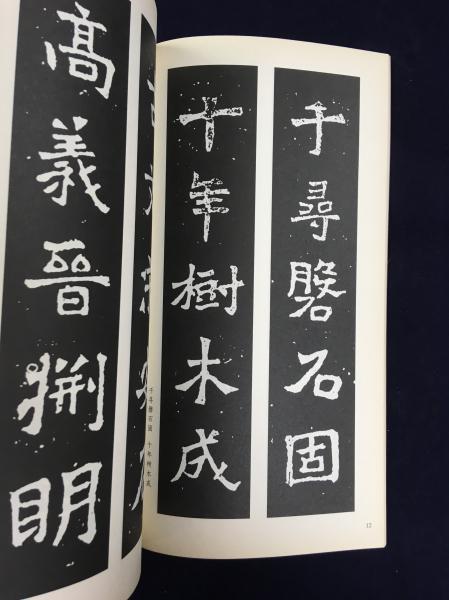 千尋磐石固
十年樹木成
千寻磐石固 十年树木成
12
高義晉捌明